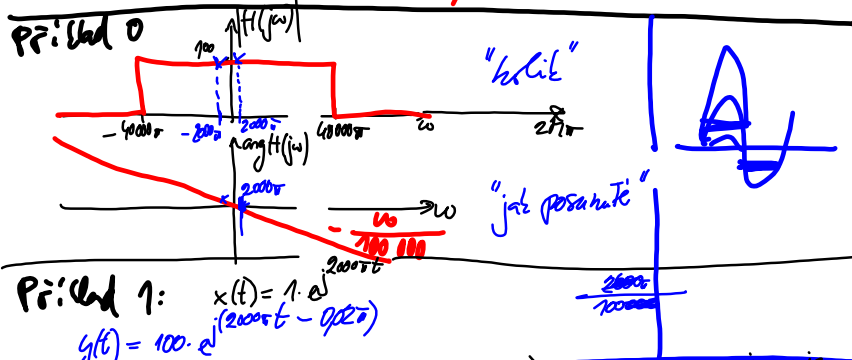 Příklad 0
|H(jω)|
100
"kolik"
-40000π -2000π 2000π 40000π ω
arg H(jω)
2000π
ω
"jak posunuté"
- ω
100 000
Příklad 1: x(t) = 1·e^j2000πt
2000π
100000
y(t) = 100·e^j(2000πt - 0,02π)